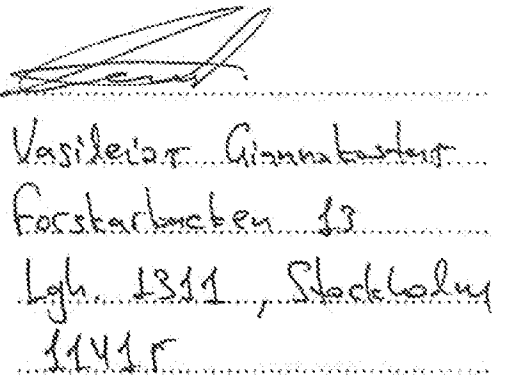 Vasileios Giannakostas
Forskarbacken 13
Lgh. 1311, Stockholm
11415